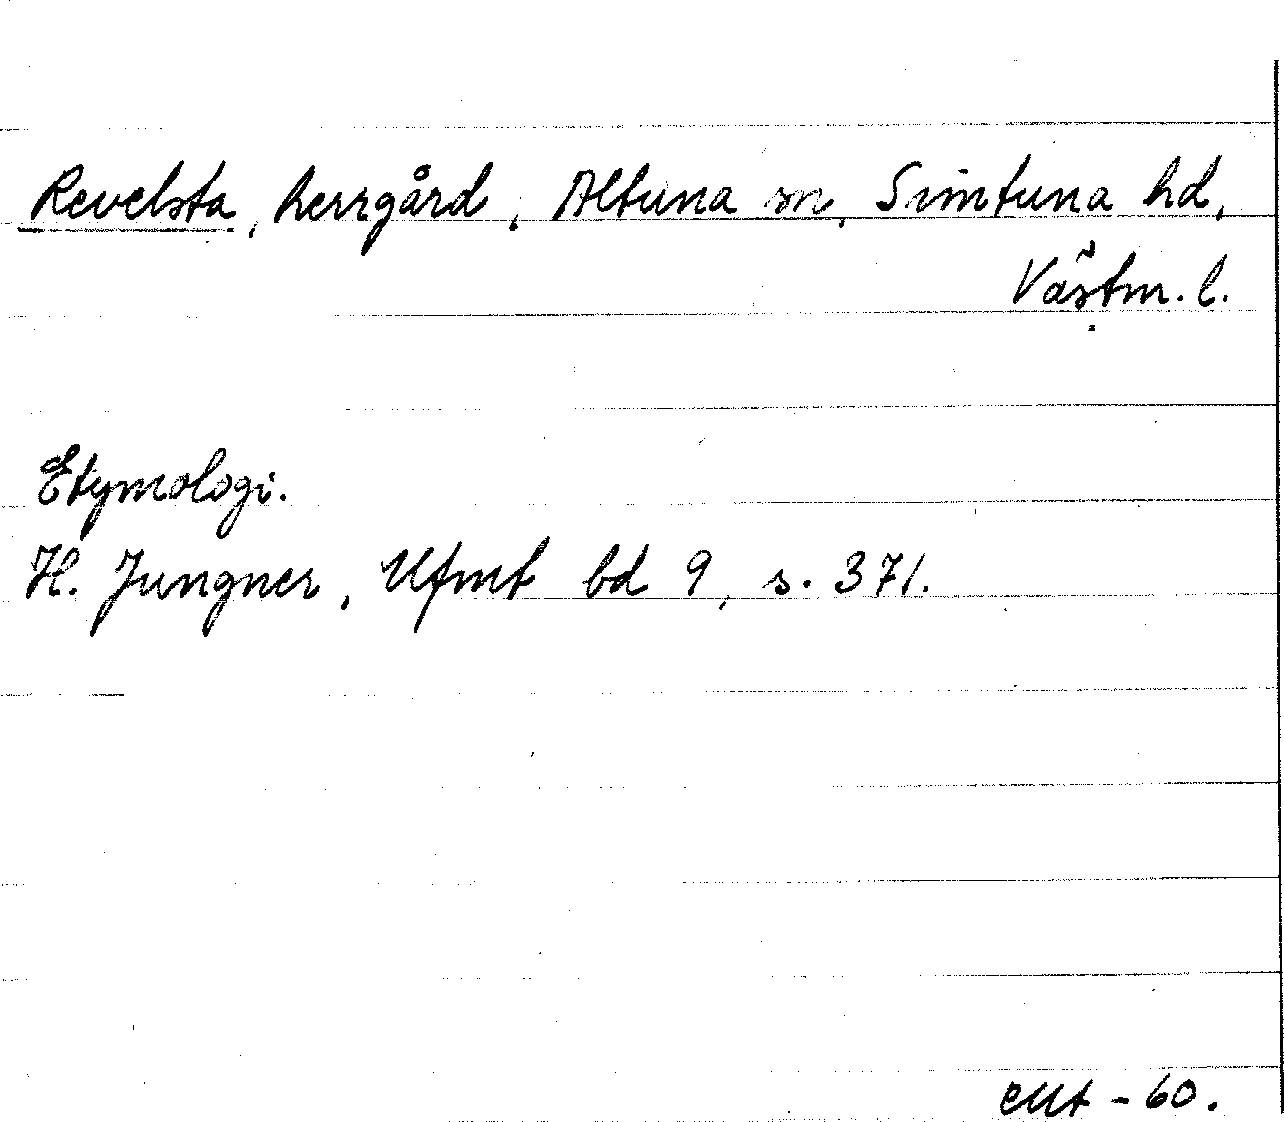 Revelsta, herrgård, Altuna sn, Simtuna hd,
Västm. l.
Etymologi.
H. Jungner, Ufmt bd 9, s. 371.
-60.